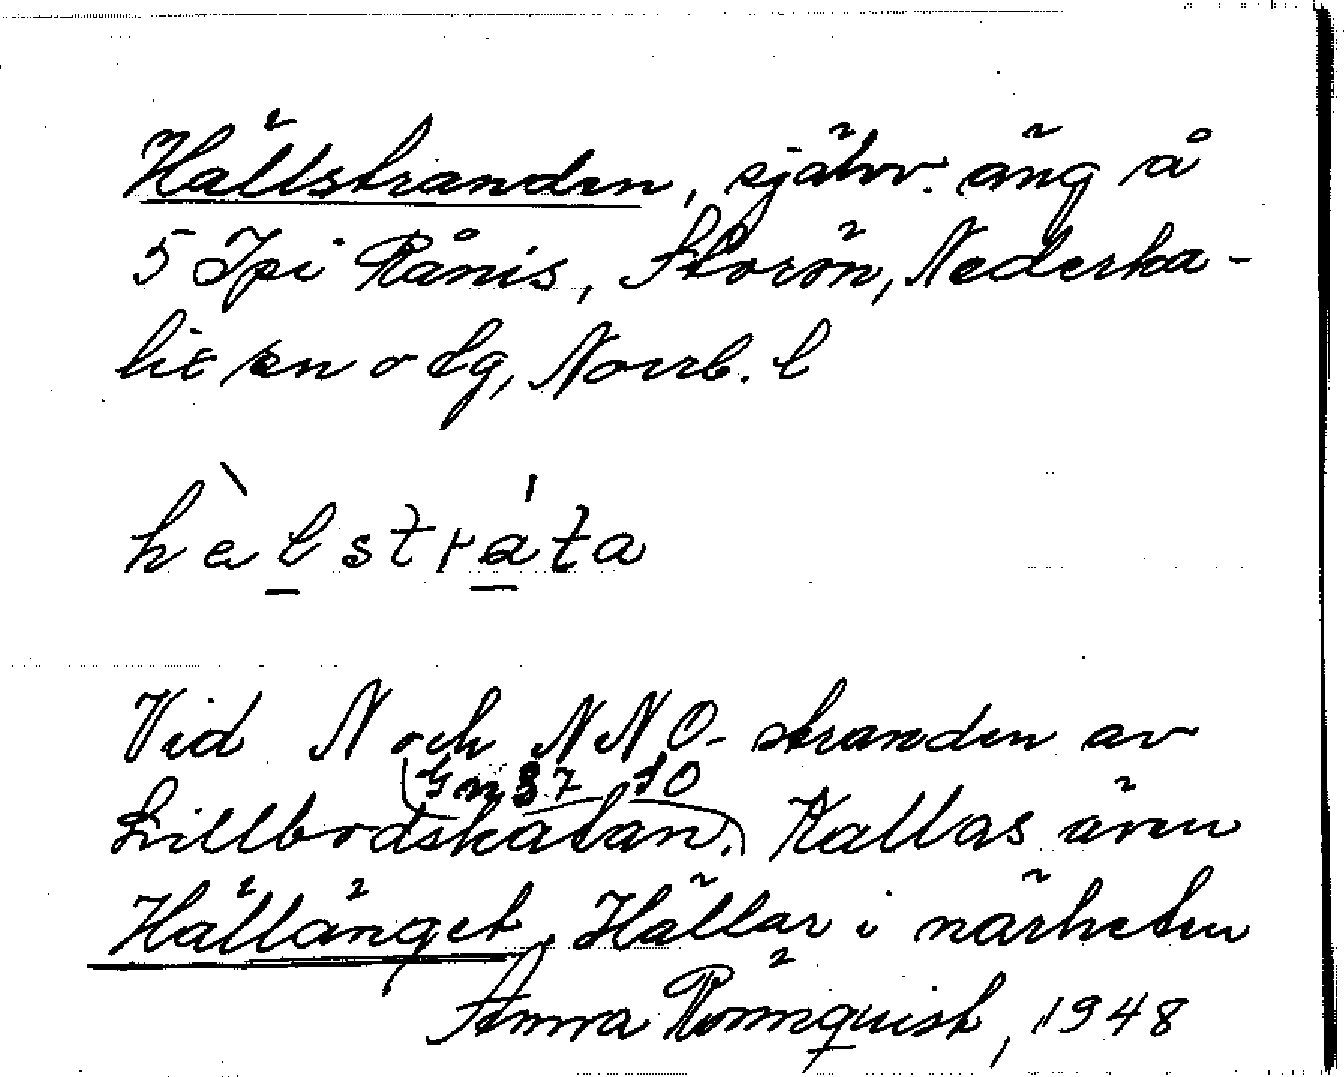 Hällstranden, självv. äng å
5 Ipi Rånis, Storön, Nederka-
lix sn o tg, Norrb. l
hèlstráta
Vid N och NNO-stranden av
(Gm37 10
Lillbrodskatan.) Kallas även
Hällänget, Hällar i närheten
Anna Rönnquist, 1948